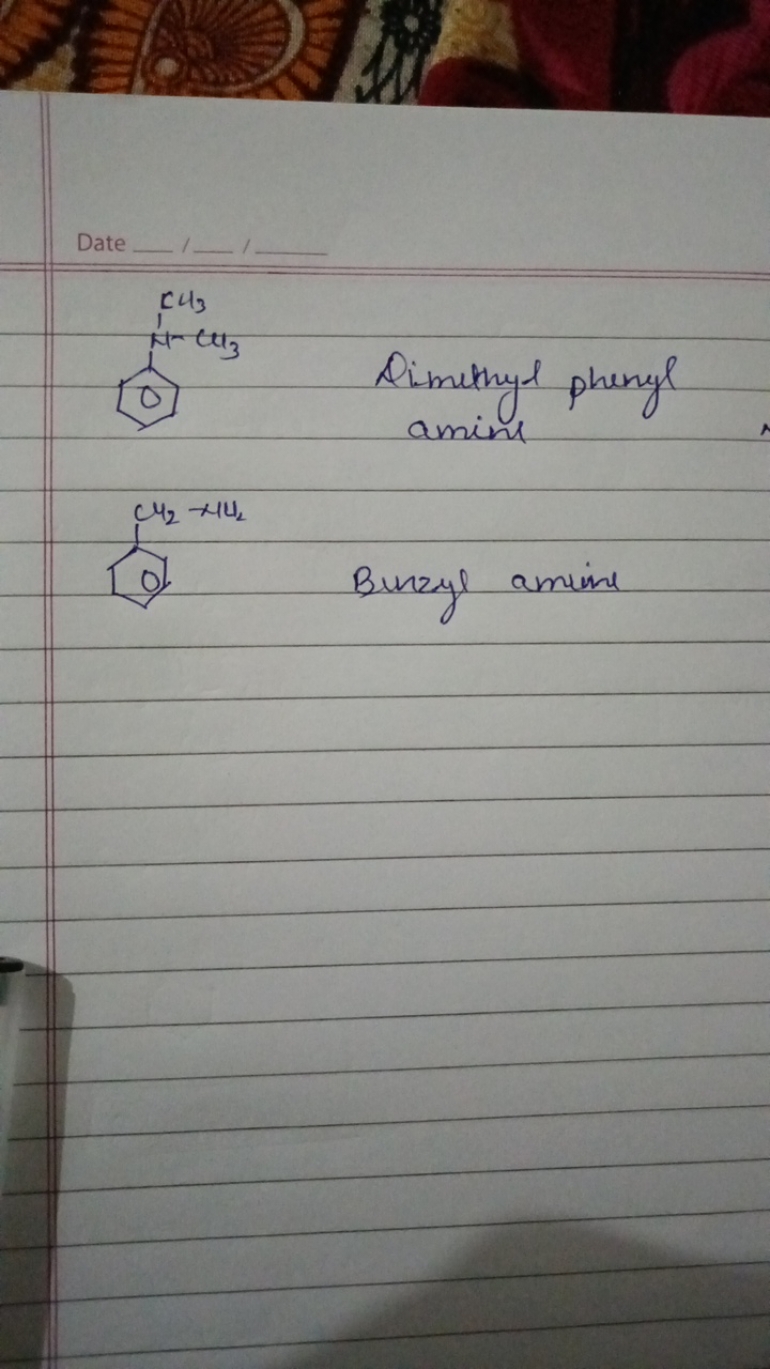 Date ___ / ___ / _____
CH3
N-CH3
Dimethyl phenyl
amine
CH2-NH2
Benzyl amine